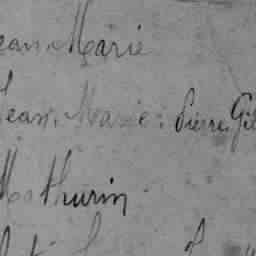 ean Marie
Jean, Marie: Pierre, Gil
Mathurin